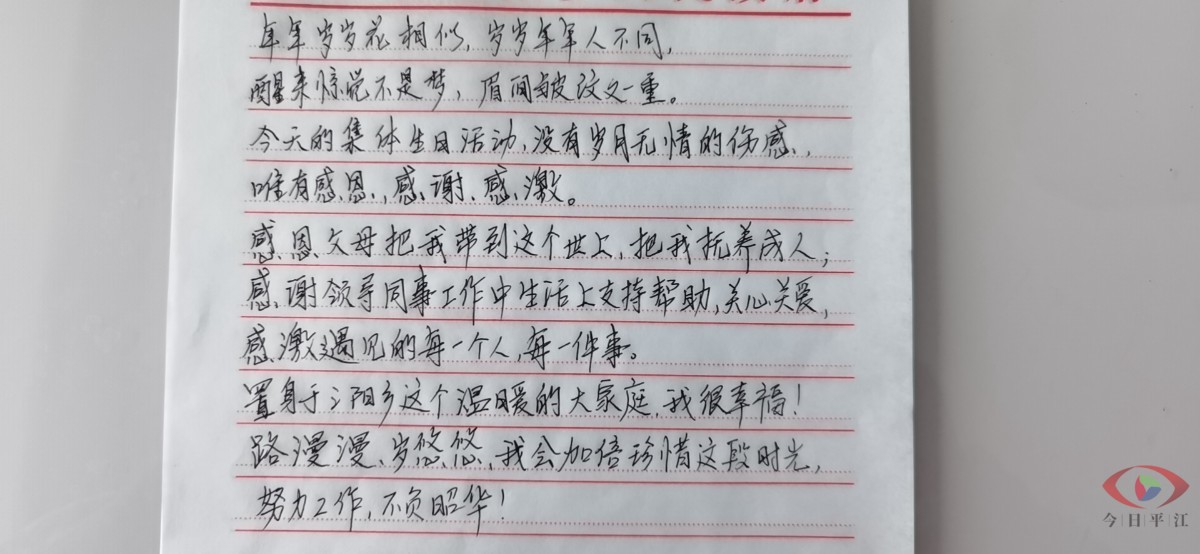 年年岁岁花相似，岁岁年年人不同，
醒来惊觉不是梦，眉间皱纹又一重。
今天的集体生日活动，没有岁月无情的伤感，
唯有感恩、感谢、感激。
感恩父母把我带到这个世上，把我抚养成人；
感谢领导同事工作中生活上支持帮助，关心关爱，
感激遇见的每一个人，每一件事。
置身于三阳乡这个温暖的大家庭，我很幸福！
路漫漫、岁悠悠，我会加倍珍惜这段时光，
努力工作，不负韶华！
今日平江